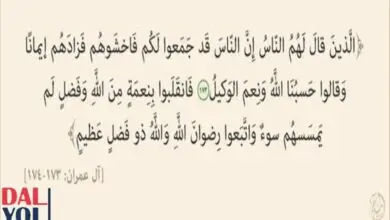 ﴿الَّذينَ قالَ لَهُمُ النّاسُ إِنَّ النّاسَ قَد جَمَعوا لَكُم فَاخشَوهُم فَزادَهُم إيمانًا
وَقالوا حَسبُنَا اللَّهُ وَنِعمَ الوَكيلُ ۝١٧٣ فَانقَلَبوا بِنِعمَةٍ مِنَ اللَّهِ وَفَضلٍ لَم
يَمسَسهُم سوءٌ وَاتَّبَعوا رِضوانَ اللَّهِ وَاللَّهُ ذو فَضلٍ عَظيمٍ﴾
[آل عمران: ١٧٣-١٧٤]
DAL
YOL